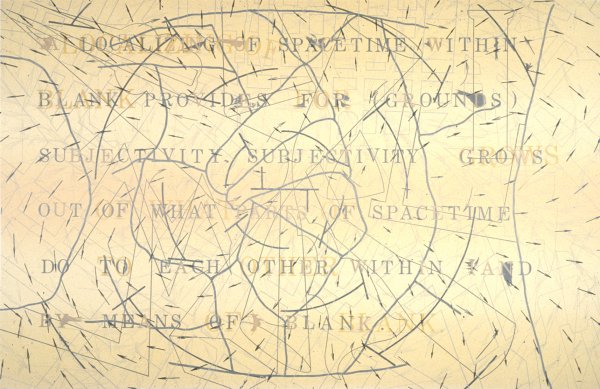 A LOCALIZING OF SPACETIME WITHIN
BLANK PROVIDES FOR (GROUNDS)
SUBJECTIVITY. SUBJECTIVITY GROWS
OUT OF WHAT PARTS OF SPACETIME
DO TO EACH OTHER WITHIN (AND
BY MEANS OF) BLANK